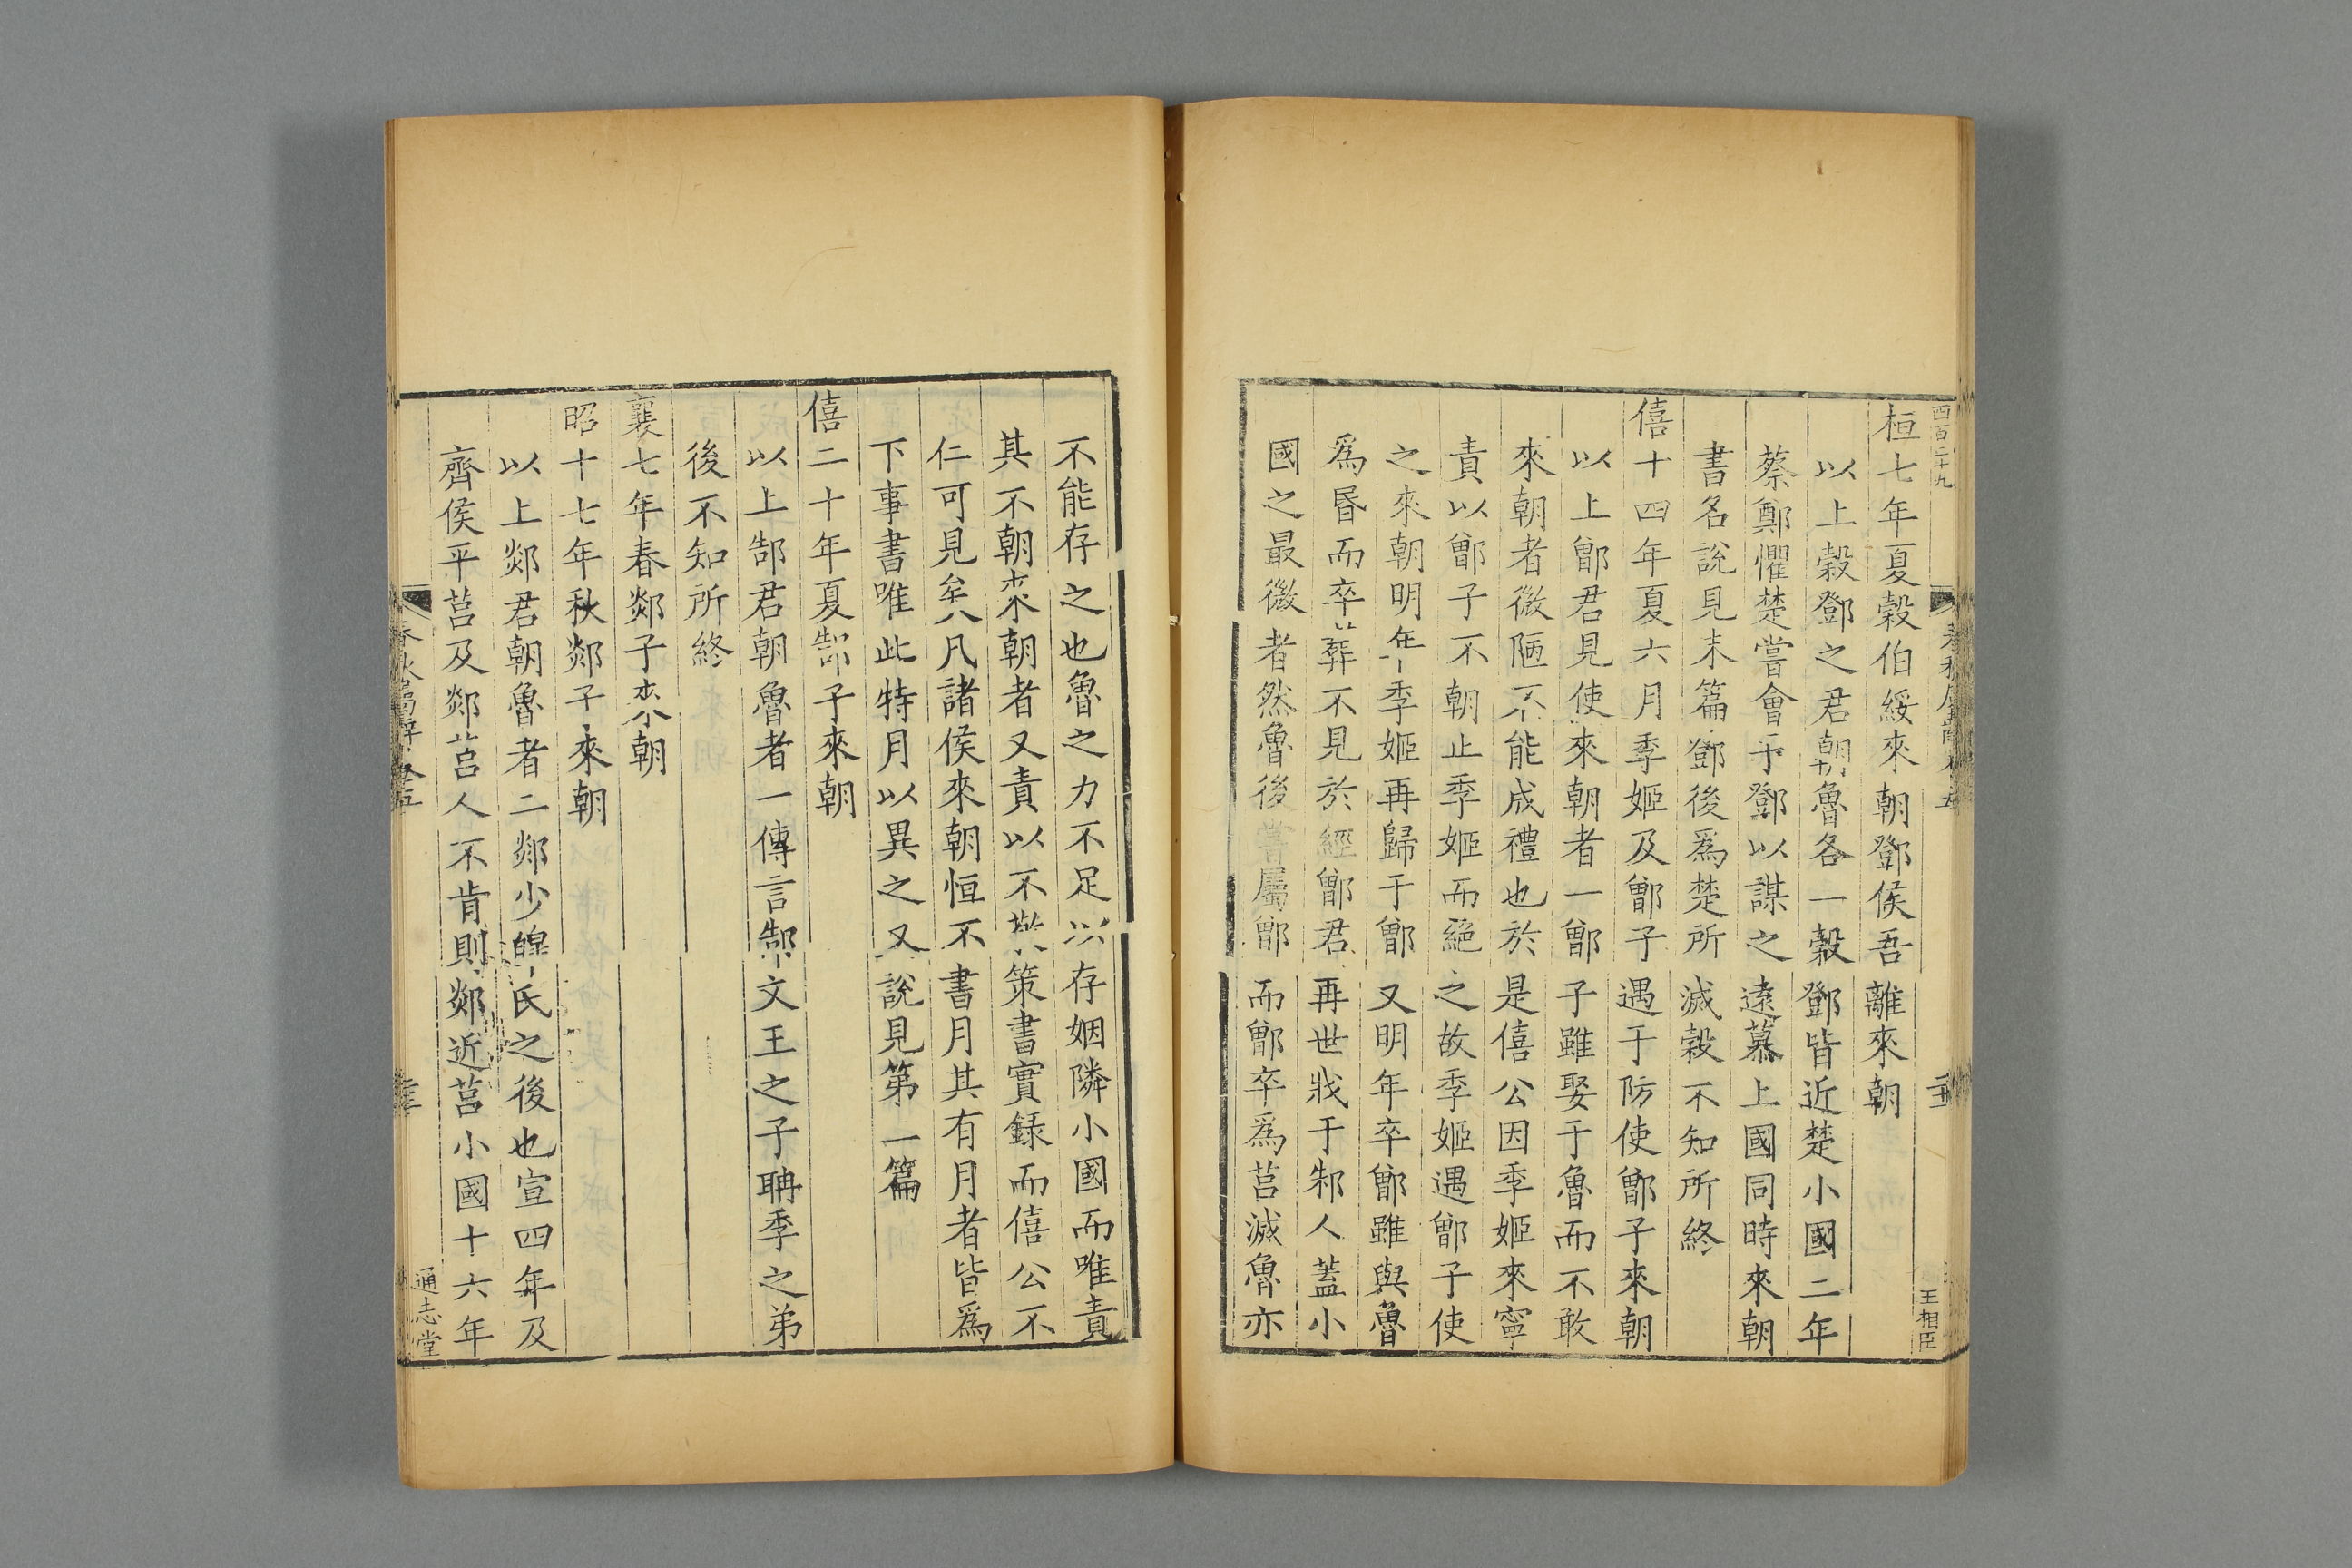 四百二十九
王相臣
桓七年夏穀伯綏來朝鄧侯吾離來朝
以上穀鄧之君朝魯各一穀鄧皆近楚小國二年
蔡鄭懼楚嘗會于鄧以謀之遠慕上國同時來朝
書名說見末篇鄧後爲楚所滅穀不知所終
僖十四年夏六月季姬及鄫子遇于防使鄫子來朝
以上鄫君見使來朝者一鄫子雖娶于魯而不敢
來朝者微陋不能成禮也於是僖公因季姬來寧
責以鄫子不朝止季姬而絕之故季姬遇鄫子使
之來朝明年季姬再歸于鄫又明年卒鄫雖與魯
爲昏而卒葬不見於經鄫君再世戕于邾人蓋小
國之最微者然魯後嘗屬鄫而鄫卒爲莒滅魯亦
不能存之也魯之力不足以存姻隣小國而唯責
其不朝來朝者又責以不敬策書實録而僖公不
仁可見矣凡諸侯來朝恒不書月其有月者皆爲
下事書唯此特月以異之又說見第一篇
僖二十年夏郜子來朝
以上郜君朝魯者一傳言郜文王之子聃季之弟
後不知所終
襄七年春郯子來朝
昭十七年秋郯子來朝
以上郯君朝魯者二郯少皥氏之後也宣四年及
齊侯平莒及郯莒人不肯則郯近莒小國十六年
春秋屬辭卷五
通志堂